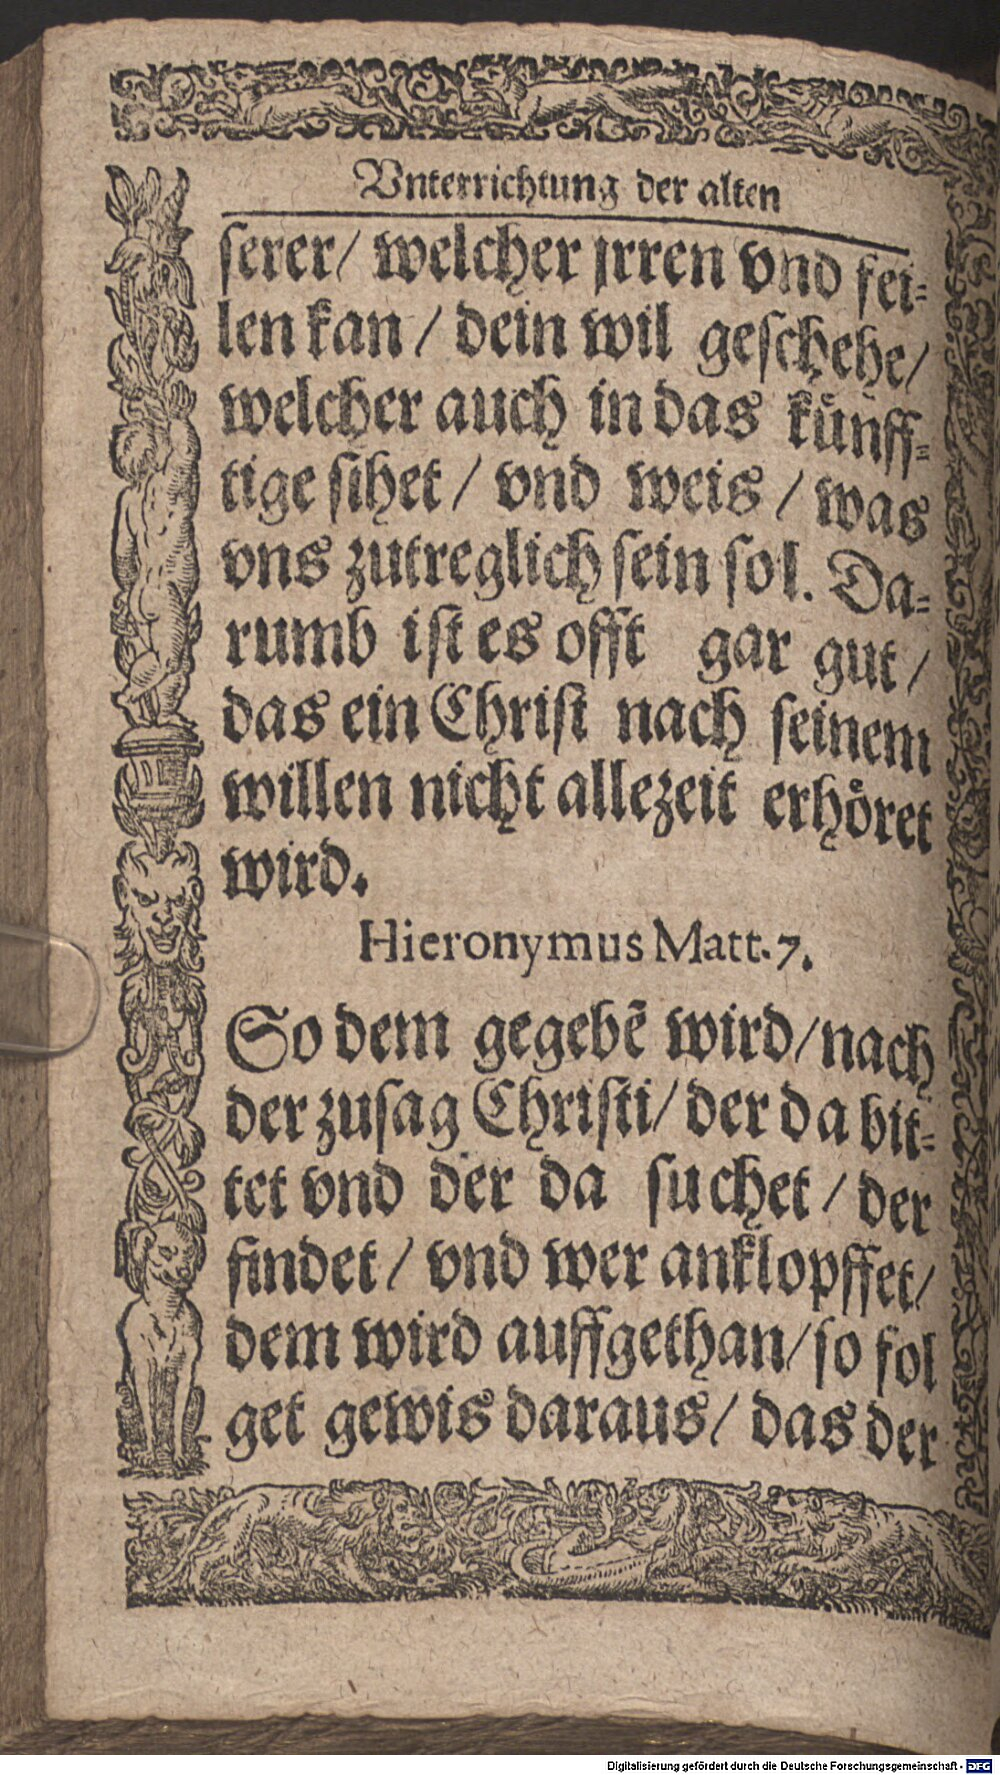 Vnterrichtung der alten
ſerer/ welcher jrren vnd fei⸗
len kan / dein wil geſchehe/
welcher auch in das kuͤnff⸗
tige ſihet / vnd weis / was
vns zutreglich ſein ſol. Da⸗
rumb iſt es offt gar gut /
das ein Chriſt nach ſeinem
willen nicht allezeit erhoͤret
wird.
Hieronymus Matt. 7.
So dem gegebẽ wird/ nach
der zuſag Chriſti/ der da bit⸗
tet vnd der da ſuchet / der
findet / vnd wer anklopffet/
dem wird auffgethan/ ſo fol
get gewis daraus/ das der
Digitalisierung gefördert durch die Deutsche Forschungsgemeinschaft - DFG